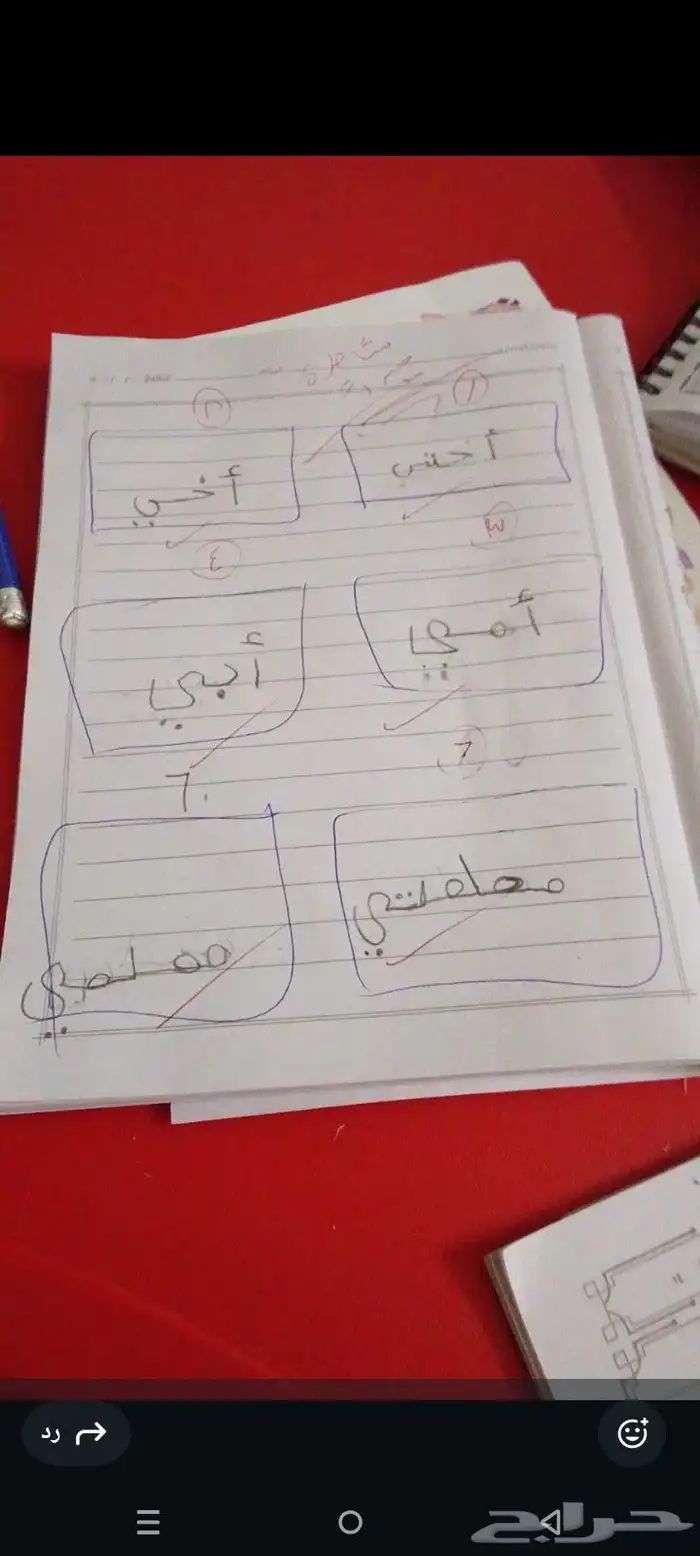 ١ ٢
أختي أخي
٣ ٤
أمي أبي
٦
معلمتي
رد
حراج